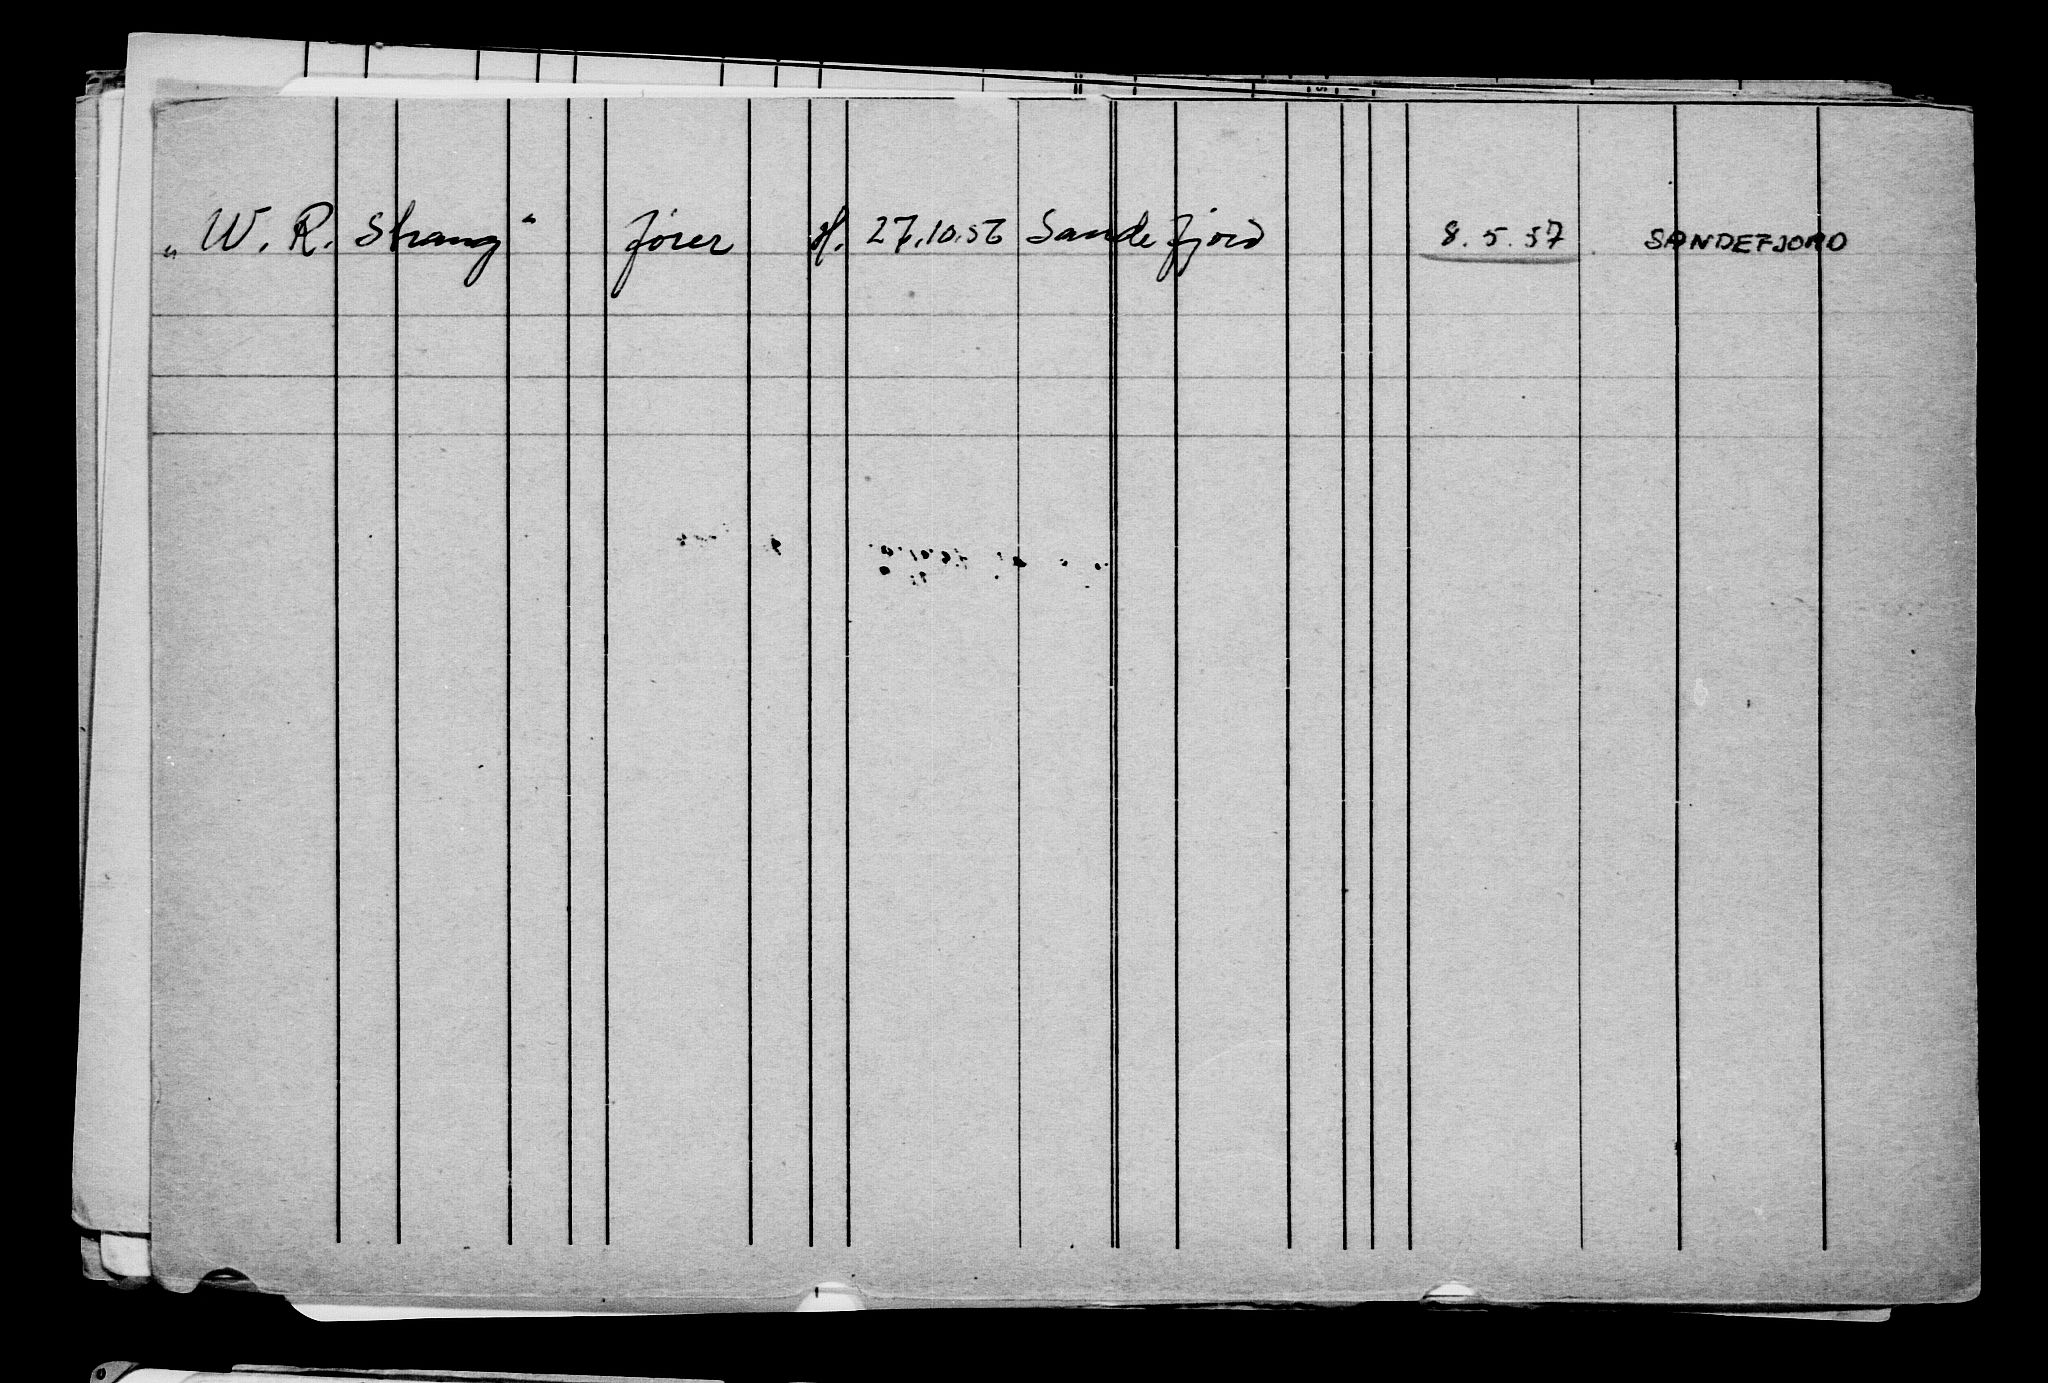 „W. R. Strang" fører H. 27.10.56 Sandefjord 8.5.57 SANDEFJORD